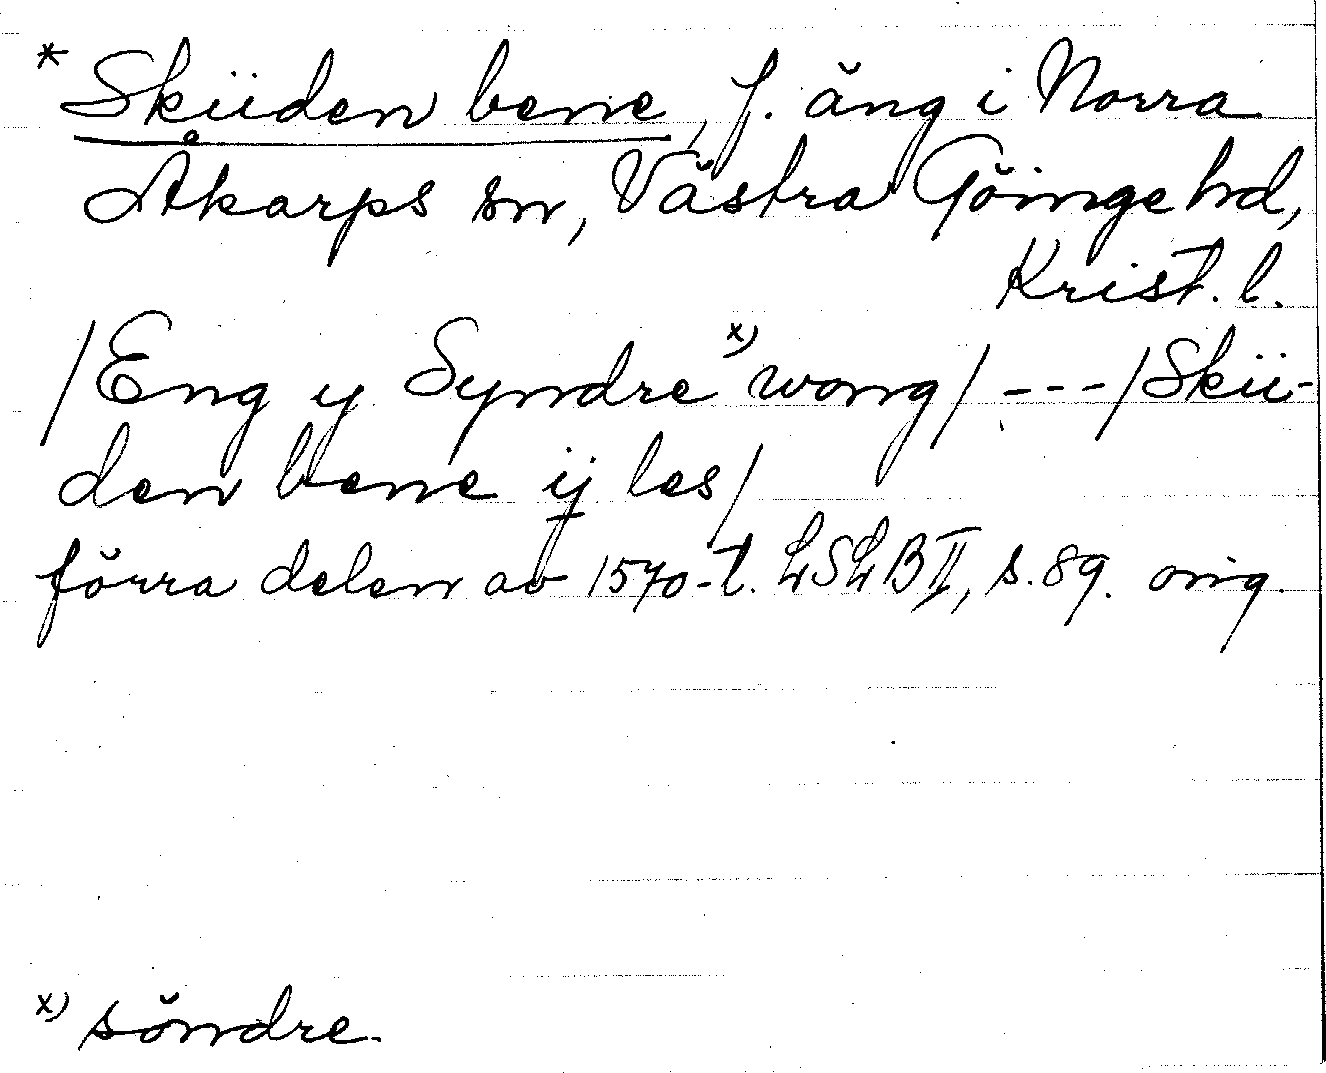 * Skiiden bene, f. äng i Norra
Åkarps sn, Västra Göinge hd,
Krist. l.
/Eng y Syndre x) wong/ --- /Skii-
den bene ij les/
förra delen av 1570-t. LSLB II, s. 89. orig.
x) söndre.